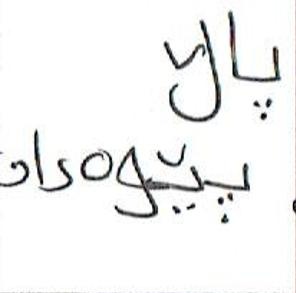 پاڵ
پێوەدان